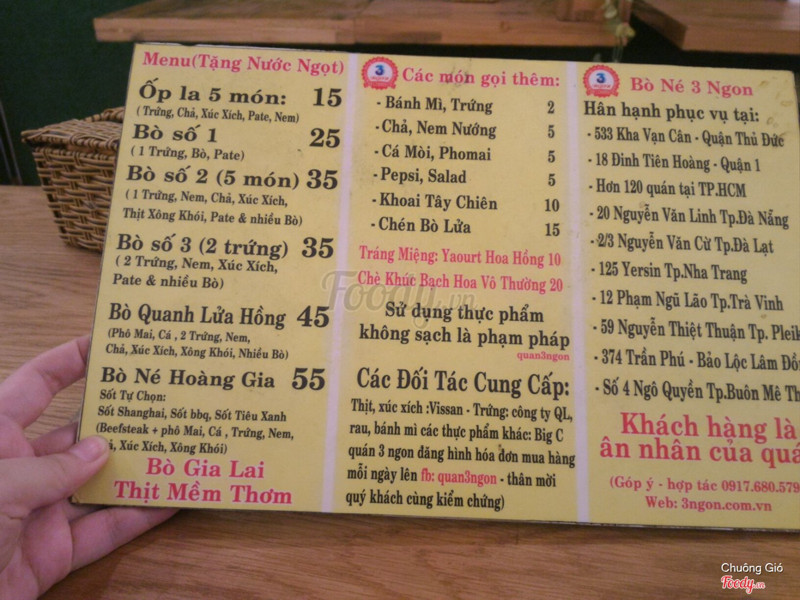 Menu(Tặng Nước Ngọt)
Ốp la 5 món: 15
( Trứng, Chả, Xúc Xích, Pate, Nem)
Bò số 1 25
( 1 Trứng, Bò, Pate)
Bò số 2 (5 món) 35
( 1 Trứng, Nem, Chả, Xúc Xích,
Thịt Xông Khói, Pate & nhiều Bò)
Bò số 3 (2 trứng) 35
( 2 Trứng, Nem, Xúc Xích,
Pate & nhiều Bò)
Bò Quanh Lửa Hồng 45
(Phô Mai, Cá , 2 Trứng, Nem,
Chả, Xúc Xích, Xông Khói, Nhiều Bò)
Bò Né Hoàng Gia 55
Sốt Tự Chọn:
Sốt Shanghai, Sốt bbq, Sốt Tiêu Xanh
(Beefsteak + phô Mai, Cá , Trứng, Nem,
Xúc Xích, Xông Khói)
Bò Gia Lai
Thịt Mềm Thơm
3
Các món gọi thêm:
- Bánh Mì, Trứng 2
- Chả, Nem Nướng 5
- Cá Mòi, Phomai 5
- Pepsi, Salad 5
- Khoai Tây Chiên 10
- Chén Bò Lửa 15
Tráng Miệng: Yaourt Hoa Hồng 10
Chè Khúc Bạch Hoa Vô Thường 20
Sử dụng thực phẩm
không sạch là phạm pháp
quan3ngon
Các Đối Tác Cung Cấp:
Thịt, xúc xích :Vissan - Trứng: công ty QL,
rau, bánh mì các thực phẩm khác: Big C
quán 3 ngon đăng hình hóa đơn mua hàng
mỗi ngày lên fb: quan3ngon - thân mời
quý khách cùng kiểm chứng)
3
Bò Né 3 Ngon
Hân hạnh phục vụ tại:
- 533 Kha Vạn Cân - Quận Thủ Đức
- 18 Đinh Tiên Hoàng - Quận 1
- Hơn 120 quán tại TP.HCM
- 20 Nguyễn Văn Linh Tp.Đà Nẵng
- 2/3 Nguyễn Văn Cừ Tp.Đà Lạt
- 125 Yersin Tp.Nha Trang
- 12 Phạm Ngũ Lão Tp.Trà Vinh
- 59 Nguyễn Thiệt Thuận Tp. Pleik
- 374 Trần Phú - Bảo Lộc Lâm Đồ
- Số 4 Ngô Quyền Tp.Buôn Mê Th
Khách hàng là
ân nhân của quá
(Góp ý - hợp tác 0917.680.579
Web: 3ngon.com.vn
Foody.vn
Chuông Gió
Foody